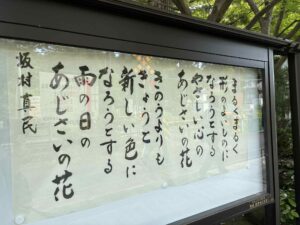 まるくまるく
形の
なろうとする
やさしい心の
あじさいの花
きのうよりも
きょうと
新しい色に
なろうとする
雨の日の
あじさいの花
坂村真民